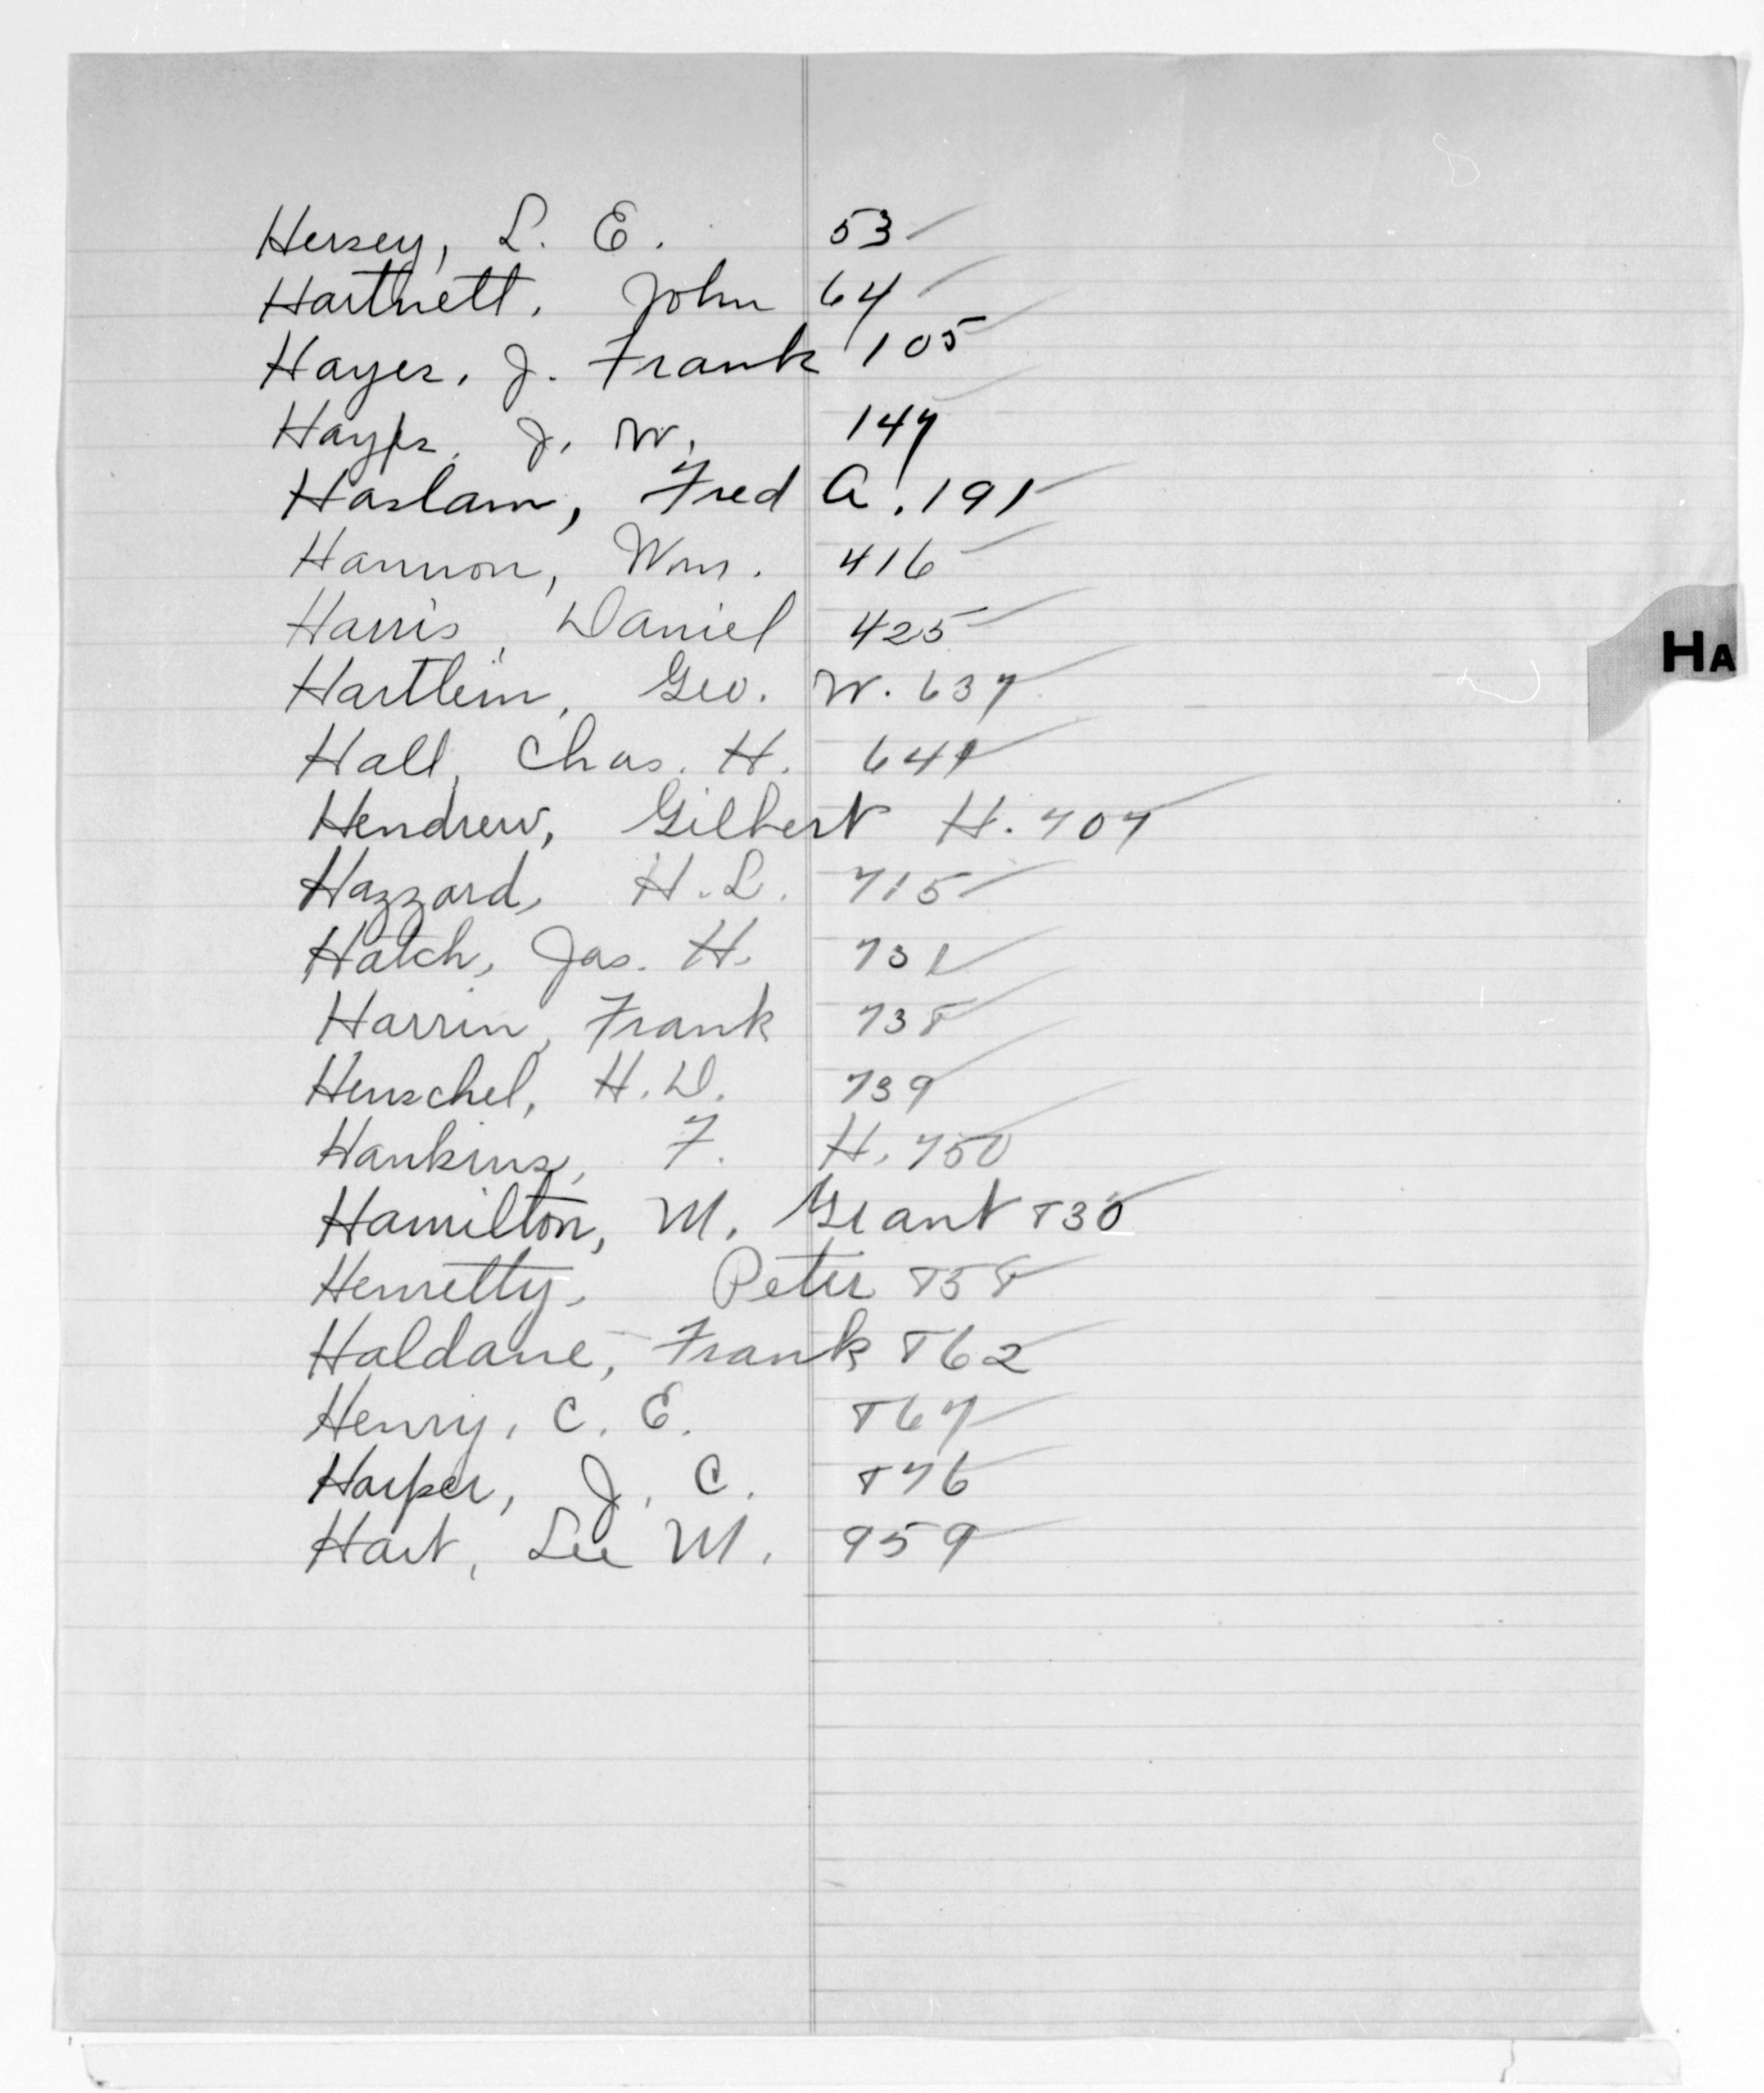 Hersey, L. E. 53
Hartnett, John 64
Hayes, J. Frank 105
Hayes, J. W. 147
Haslam, Fred A. 191
Hannon, Wm. 416
Harris, Daniel 425
HA
Hartlein, Geo. W. 637
Hall, Chas. H. 641
Hendrew, Gilbert H. 707
Hazzard, H. L. 715
Hatch, Jas. H. 731
Harrin, Frank 738
Henschel, H. D. 739
Hankins, F. H. 750
Hamilton, M. Grant 830
Henretty, Peter 858
Haldane, Frank 862
Henry, C. E. 867
Harper, J. C. 876
Hart, Lee M. 959